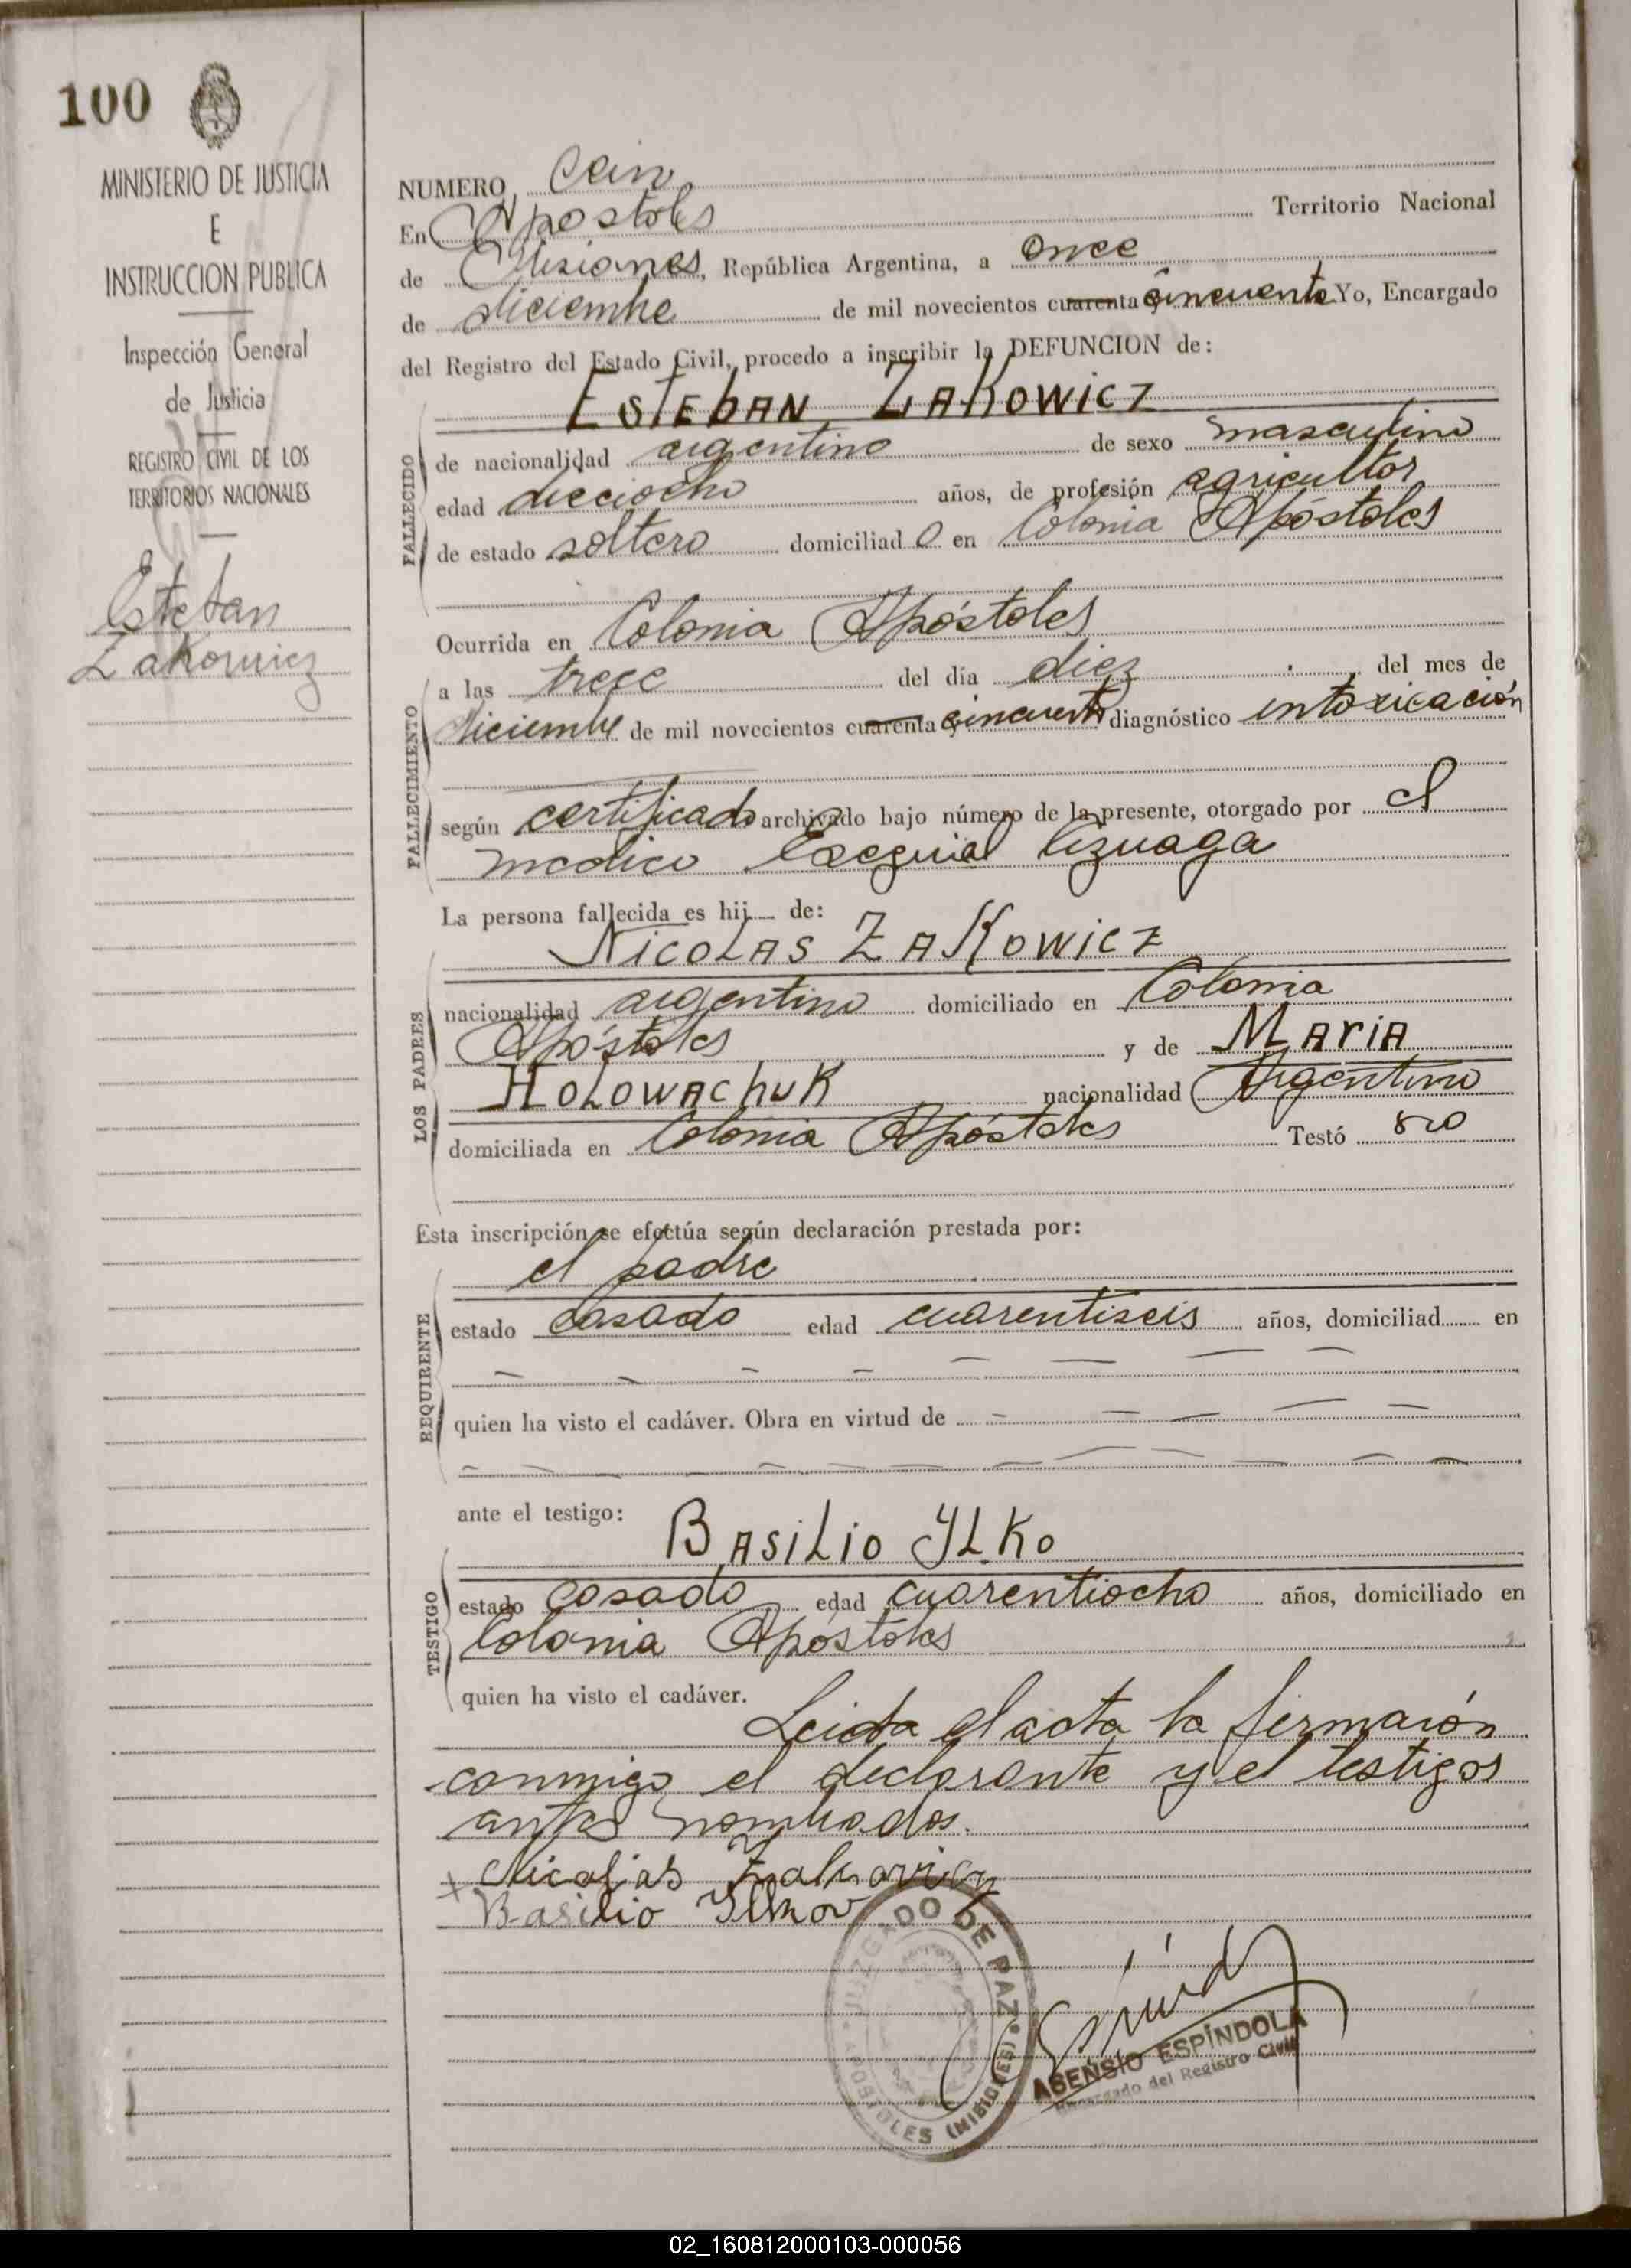 100
MINISTERIO DE JUSTICIA
E
INSTRUCCION PUBLICA
Inspección General
de Justicia
REGISTRO CIVIL DE LOS
TERRITORIOS NACIONALES
Esteban
Zakowicz
NUMERO Cien
En Apostoles Territorio Nacional
de Misiones, República Argentina, a once
de diciembre de mil novecientos cuarenta y cincuenta Yo, Encargado
del Registro del Estado Civil, procedo a inscribir la DEFUNCION de:
ESTEBAN ZAKOWICZ
FALLECIDO
de nacionalidad argentino de sexo masculino
edad dieciocho años, de profesión agricultor
de estado soltero domiciliado en Colonia Apóstoles
Ocurrida en Colonia Apóstoles
FALLECIMIENTO
a las trece del día diez del mes de
diciembre de mil novecientos cuarenta y cincuenta diagnóstico intoxicación
según certificado archivado bajo número de la presente, otorgado por el
medico Exequial
La persona fallecida es hij de:
NICOLAS ZAKOWICZ
LOS PADRES
nacionalidad argentino domiciliado en Colonia
Apóstoles y de MARIA
HOLOWACHUK nacionalidad Argentina
domiciliada en Colonia Apóstoles Testó
Esta inscripción se efectúa según declaración prestada por:
el padre
REQUIRENTE
estado casado edad cuarentiseis años, domiciliad en
quien ha visto el cadáver. Obra en virtud de
ante el testigo:
BASILIO YLKO
TESTIGO
estado casado edad cuarentiocho años, domiciliado en
Colonia Apóstoles
quien ha visto el cadáver.
Leida el acta la firmarón
conmigo el declarante y el testigos
antes nombrados.
Basilio Ilkow
JUZGADO DE PAZ
APOSTOLES (MISIONES)
ASENSIO ESPÍNDOLA
Encargado del Registro Civil
02_160812000103-000056